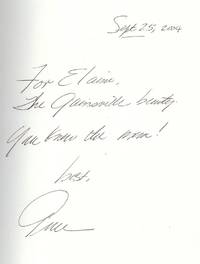 Sept 25, 2004
For Elaine,
The Gainsville beauty.
You know the
best,